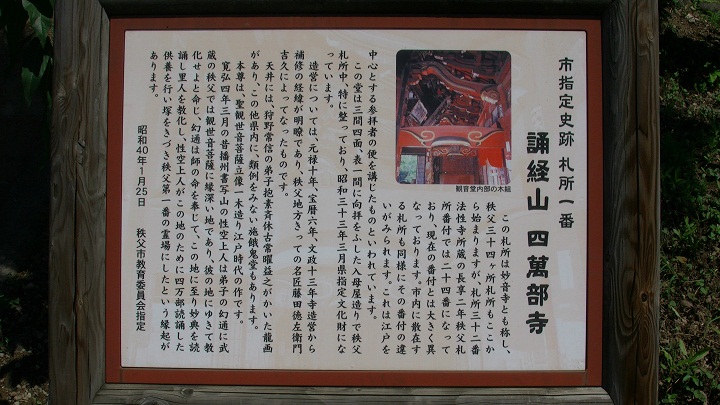 市指定史跡 札所一番
誦経山 四萬部寺
この札所は妙音寺とも称し、
秩父三十四ヶ所札所もここか
ら始まりますが、札所三十二番
法性寺所蔵の長享二年秩父札
所番付では二十四番になって
おり、現在の番付とは大きく異
なっております。市内に散在す
る札所も同様にその番付の違
いがみられます。これは江戸を
中心とする参拝者の便を講じたものといわれています。
この堂は三間四面、表一間に向拝をふした入母屋造りで秩父
札所中、特に整っており、昭和三十三年三月県指定文化財にな
っています。
造営については、元禄十年、宝暦六年、文政十三年寺造営から
補修の経緯が明瞭であり、秩父地方きっての名匠藤田徳左衛門
吉久によってなったものです。
天井には、狩野常信の弟子抱素斉休古常曜益之がかいた龍画
があり、この他県内に、類例をみない施餓鬼堂もあります。
本尊は、聖観世音菩薩立像一木造り江戸時代の作です。
寛弘四年三月の昔播州書写山の性空上人は弟子の幻通に武
蔵の秩父では観世音菩薩に縁深い地であり、彼の地にゆきて教
化せよと命じ、幻通は師の命を奉じて、この地に至り妙典を読
誦し里人を教化し、性空上人がこの地のために四万部読誦した
供養を行い塚をきづき秩父第一番の霊場にしたという縁起が
あります。
昭和40年1月25日 秩父市教育委員会指定
観音堂内部の木組